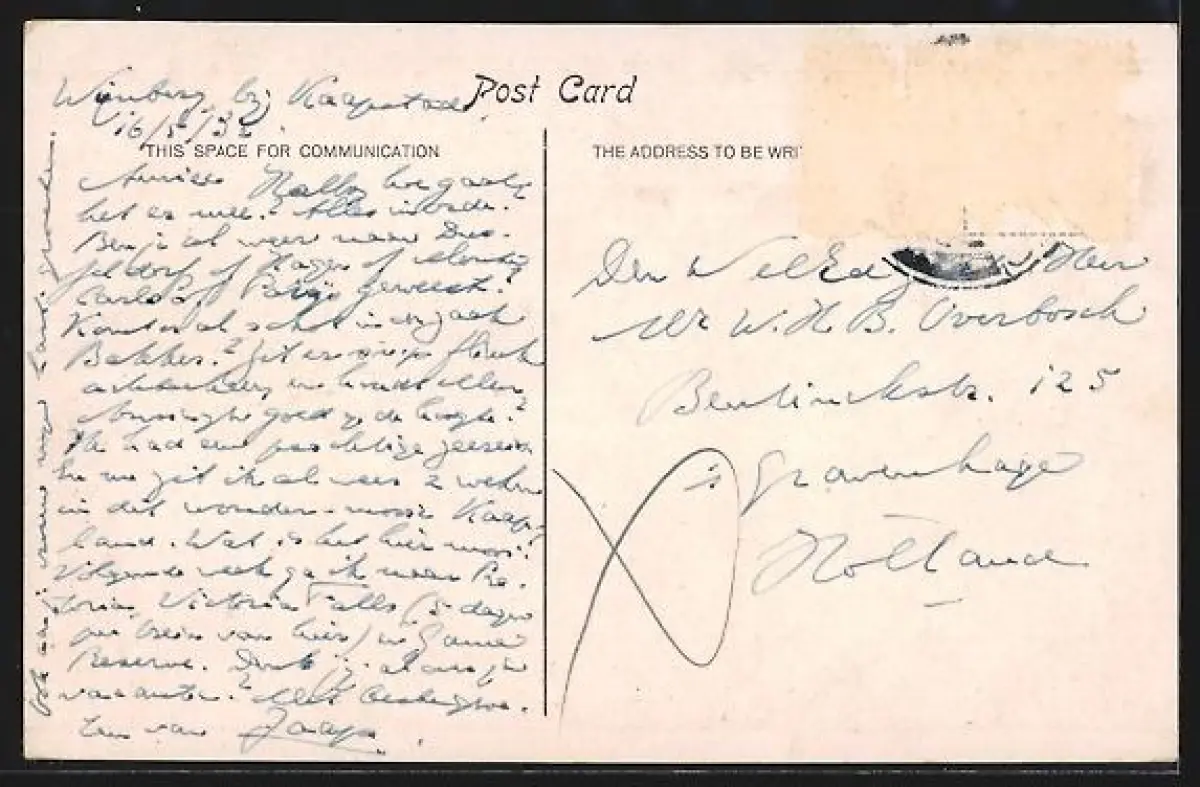 Post Card
Wijnberg bij Kaapstad
16/5/32.
THIS SPACE FOR COMMUNICATION
THE ADDRESS TO BE WRI
hoe gaat
het er mee? Alles in orde?
Ben je al weer naar Dus-
seldorf of Hagen of
Carlo of Parijs geweest?
Komt er al schot in de zaak
Bakker? Zit er
achterheen en houdt
goed op de hoogte?
Ik had een prachtige zeereis
En nu zit ik al weer 2 weken
in dit wonder-mooie Kaap-
land. Wat is het hier mooi!
Volgende week ga ik naar Pre-
toria, Victoria Falls (5 dagen
per trein van hier) en Game
Reserve. Denk jij al aan je
vacantie? Met beste groe-
ten van Jaap.
Den WelEd Heer
Mr W. H. B. Overbosch
Bentinckstr. 125
's Gravenhage
Holland